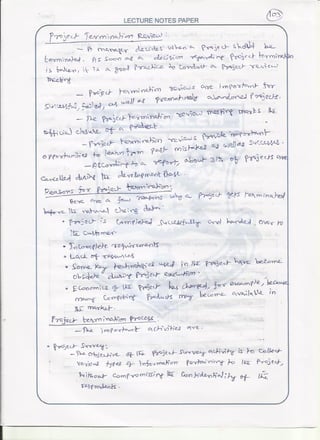 LECTURE NOTES PAPER
103
Project Termination Review
- A manager decides when a project should be
terminated. As soon as a decision regarding project termination
is taken, it is a good practice to conduct a project review
meeting
- Project termination reviews are important for
successful, failed, as well as prematurely abandoned projects.
- The project termination review meeting marks the
official closure of a project.
- Project termination reviews provide important
opportunities to learn from past mistakes as well as successes.
- According to a report, about 31% of projects are
cancelled during the development phase.
Reasons for project termination:
Here are a few reasons why a project gets terminated
before its natural closing date.
• Project is completed successfully and handed over to
the customer
• Incomplete requirements
• Lack of resources
• Some key technologies used in the project have become
obsolete during project execution.
• Economics of the project has changed, for example, because
many competing products may become available in
the market.
Project termination process
- The important activities are:
• Project survey:
- The objective of the project survey activity is to collect
various types of information pertaining to the project,
without compromising the confidentiality of the
respondents.